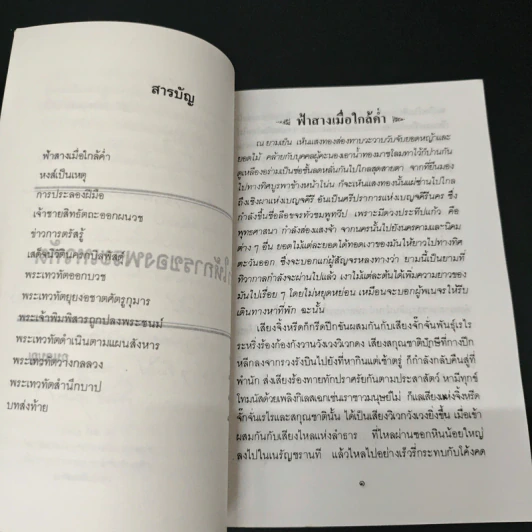 สารบัญ
ฟ้าสางเมื่อใกล้ค่ำ
หงส์เป็นเหตุ
การประลองฝีมือ
เจ้าชายสิทธัตถะออกผนวช
ข่าวการตรัสรู้
เสด็จนิวัตินครกบิลพัสดุ์
พระเทวทัตออกบวช
พระเทวทัตยุยงอชาตศัตรุกุมาร
พระเจ้าพิมพิสารถูกปลงพระชนม์
พระเทวทัตดำเนินตามแผนสังหาร
พระเทวทัตวางกลลวง
พระเทวทัตสำนึกบาป
บทส่งท้าย
ฟ้าสางเมื่อใกล้ค่ำ
ณ ยามเย็น เห็นแสงทองส่องทาบวะวาบวับจับยอดหญ้าและ
ยอดไม้ คล้ายกับบุคคลผู้คะนองเอาน้ำทองมาชโลมทาไว้ก็ปานกัน
ดูเหลืองอร่ามเป็นช่อชั้นลดหลั่นกันไปไกลสุดสายตา จากที่ยืนมอง
ไปทางทิศบูรพาข้างหน้าโน่น ก็จะเห็นแสงทองนั้นแผ่ซ่านไปไกล
ถึงเชิงผาแห่งเบญจคีรี อันเป็นศรีปราการแห่งเบญจคีรีนคร ซึ่ง
กำลังชื่นชื่อลือขจรทั่วชมพูทวีป เพราะมีดวงประทีปแก้ว คือ
พุทธศาสนา กำลังส่องแสงจ้า จากนครนั้นไปยังนครคามและนิคม
ต่าง ๆ อื่น ยอดไม้แต่ละยอดได้ทอดเงาของมันให้ยาวไปทางทิศ
ตะวันออก ซึ่งจะบอกแก่ผู้สัญจรหลงทางว่า ยามนี้เป็นยามที่
ทิวากาลกำลังจะผ่านไปแล้ว เงาไม้แต่ละต้นได้เพิ่มความยาวของ
มันไปเรื่อย ๆ โดยไม่หยุดหย่อน เหมือนจะบอกผู้พเนจรให้รีบ
เดินทางหาที่พัก ฉะนั้น
เสียงจิ้งหรีดกรีดปีกขันผสมกันกับเสียงจั๊กจั่นพันธุ์เรไร
ระหริ่งร้องก้องกังวานวังเวงวิเวกดง เสียงสกุณชาติปักษีที่กางปีก
หลีกลงจากรวงรังบินไปยังที่หากินแต่เช้าตรู่ ก็กำลังกลับคืนสู่ที่
พำนัก ส่งเสียงร้องทายทักปราศรัยกันตามประสาสัตว์ หามีทุกข์
โทมนัสด้วยเพลิงกิเลสเฉกเช่นเราชาวมนุษย์ไม่ ก็แลเสียงแห่งจิ้งหรีด
จั๊กจั่นเรไรและสกุณชาตินั้น ได้เป็นเสียงวิเวกวังเวงยิ่งขึ้น เมื่อเข้า
ผสมกันกับเสียงไหลแห่งลำธาร ที่ไหลผ่านซอกหินน้อยใหญ่
ลงไปในเนรัญชรานที แล้วไหลไปอย่างเร็วรี่กระทบกับโค้งคด
๑